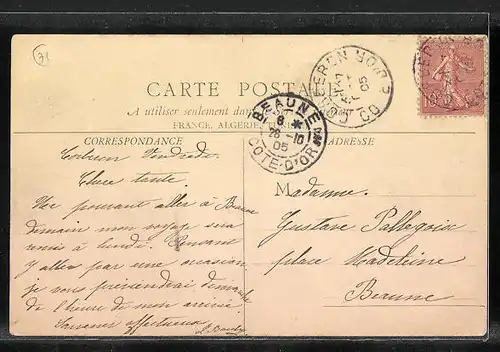 71
CARTE POSTALE
A utiliser seulement dans
FRANCE, ALGÉRIE, TUNISIE
CORRESPONDANCE
ADRESSE
BEAUNE
8 *
28 -10
05
CÔTE-D'OR
10
05
Vendredi
Chère tante
Ne pouvant aller à Beaune
demain mon voyage sera
remis à lundi. Pouvant
y aller par une occasion
je vous préviendrai dimanche
de l'heure de mon arrivée.
Madame
Gustave Pallegoix
place Madeleine
Beaune